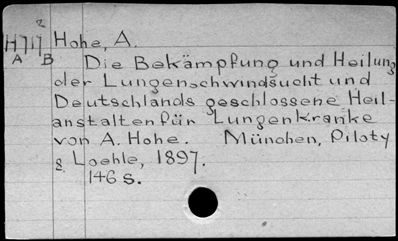 2
H717 Hohe, A.
A B Die Bekämpfung und Heilung
der Lungenschwindsucht und
Deutschlands geschlossene Heil-
anstalten für Lungenkranke
von A. Hohe. München, Piloty
& Loehle, 1897.
146 s.